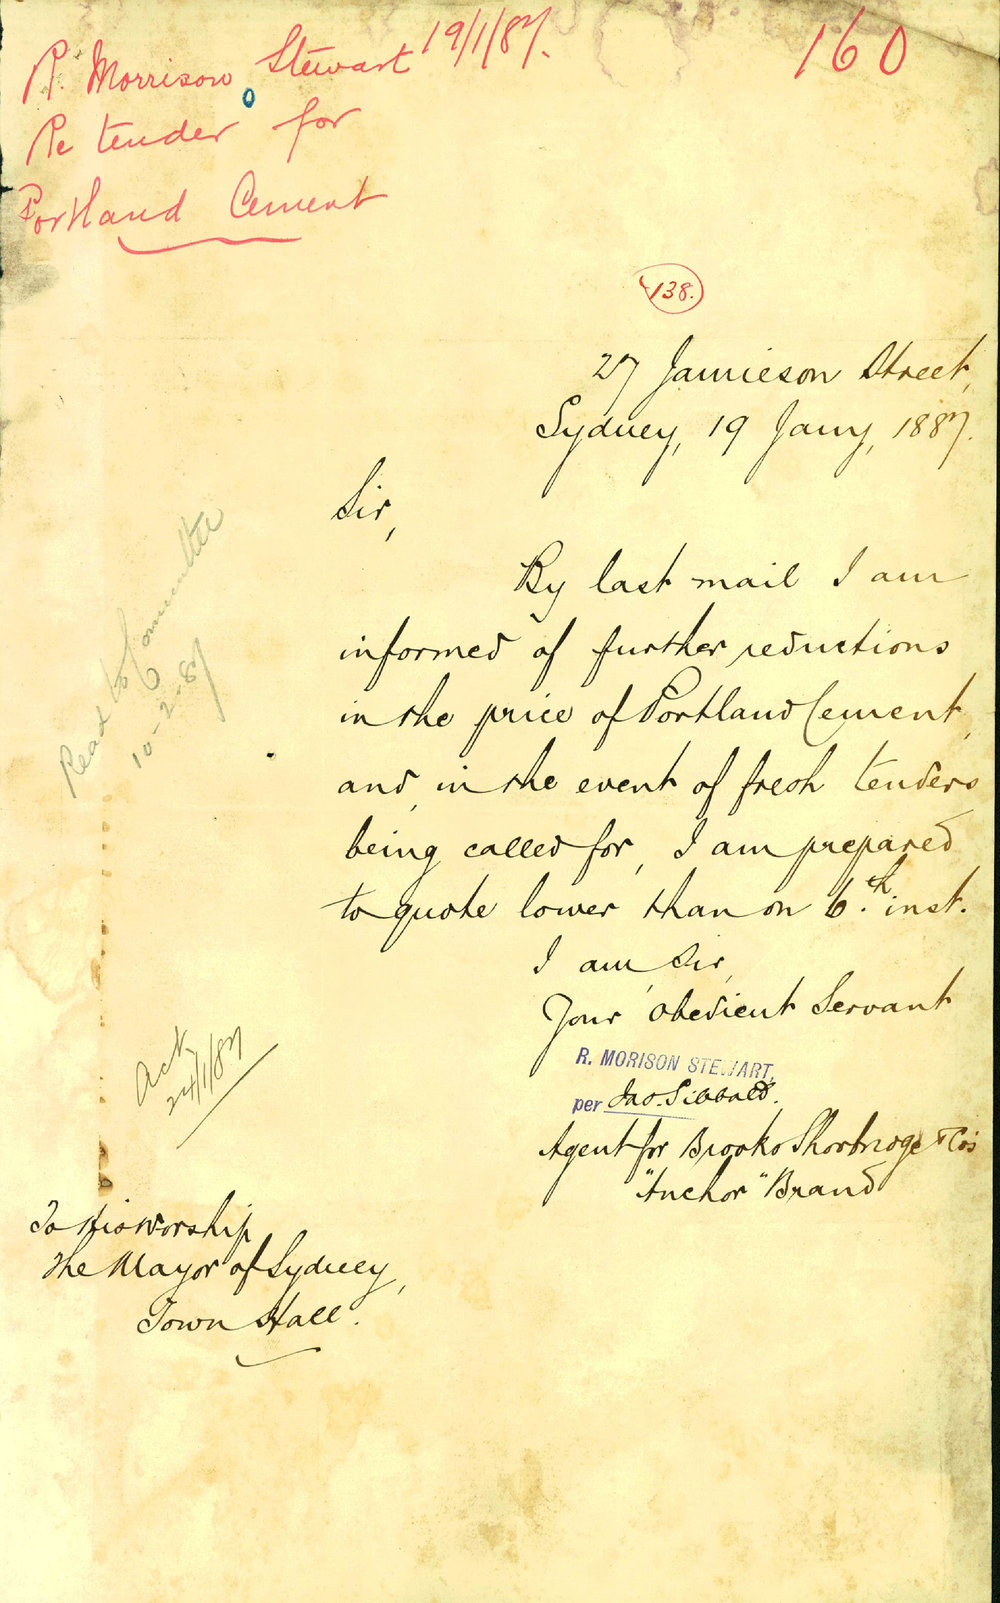 R. Morrison Stewart 19/1/87.
160
Re tender for
Portland Cement
138.
27 Jamieson Street,
Sydney, 19 Jany, 1887.
Sir,
By last mail I am
informed of further reductions
in the price of Portland Cement,
and, in the event of fresh tenders
being called for, I am prepared
to quote lower than on 6.th inst.
I am, Sir,
Your Obedient Servant
R. MORISON STEWART,
per Jas. Sibbald.
Agent for Brooks Shoobridge & Co's
"Anchor" Brand
To His Worship
The Mayor of Sydney,
Town Hall.
Read to Committee
10-2-87
Ack
24/1/87